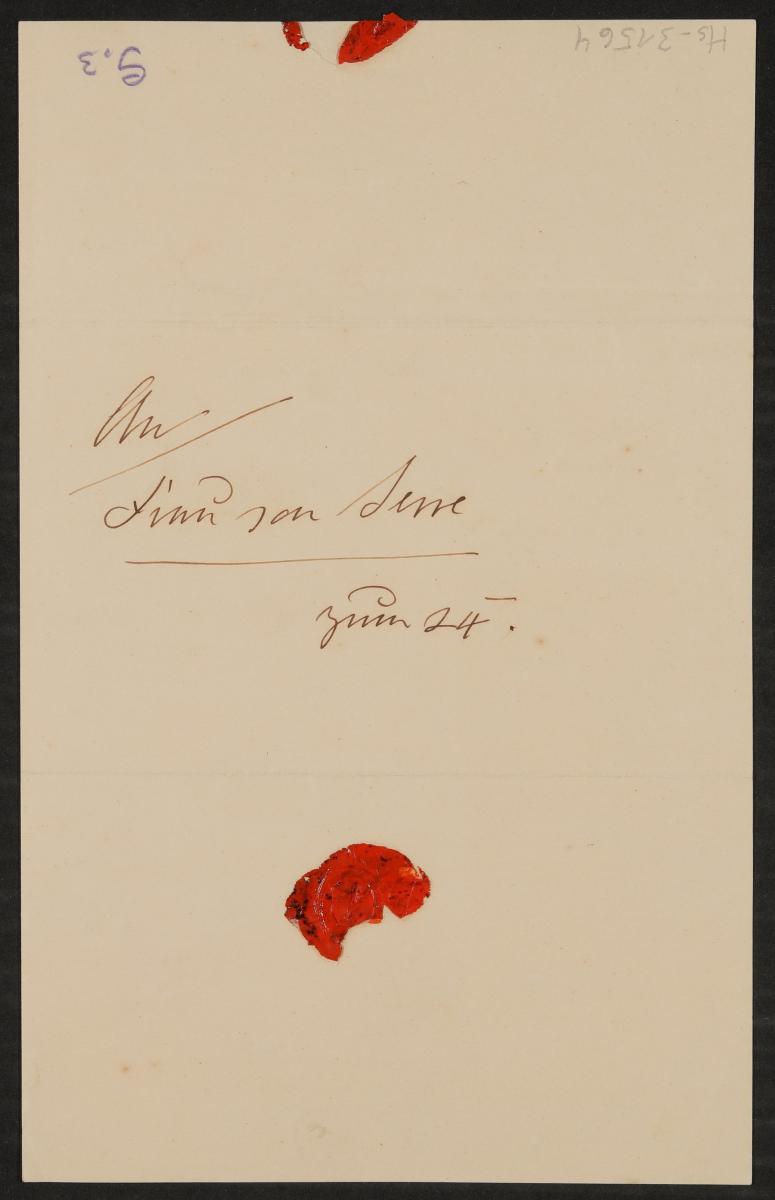 Hs-31564
9.3
An
Frau von Serre
zum 24.